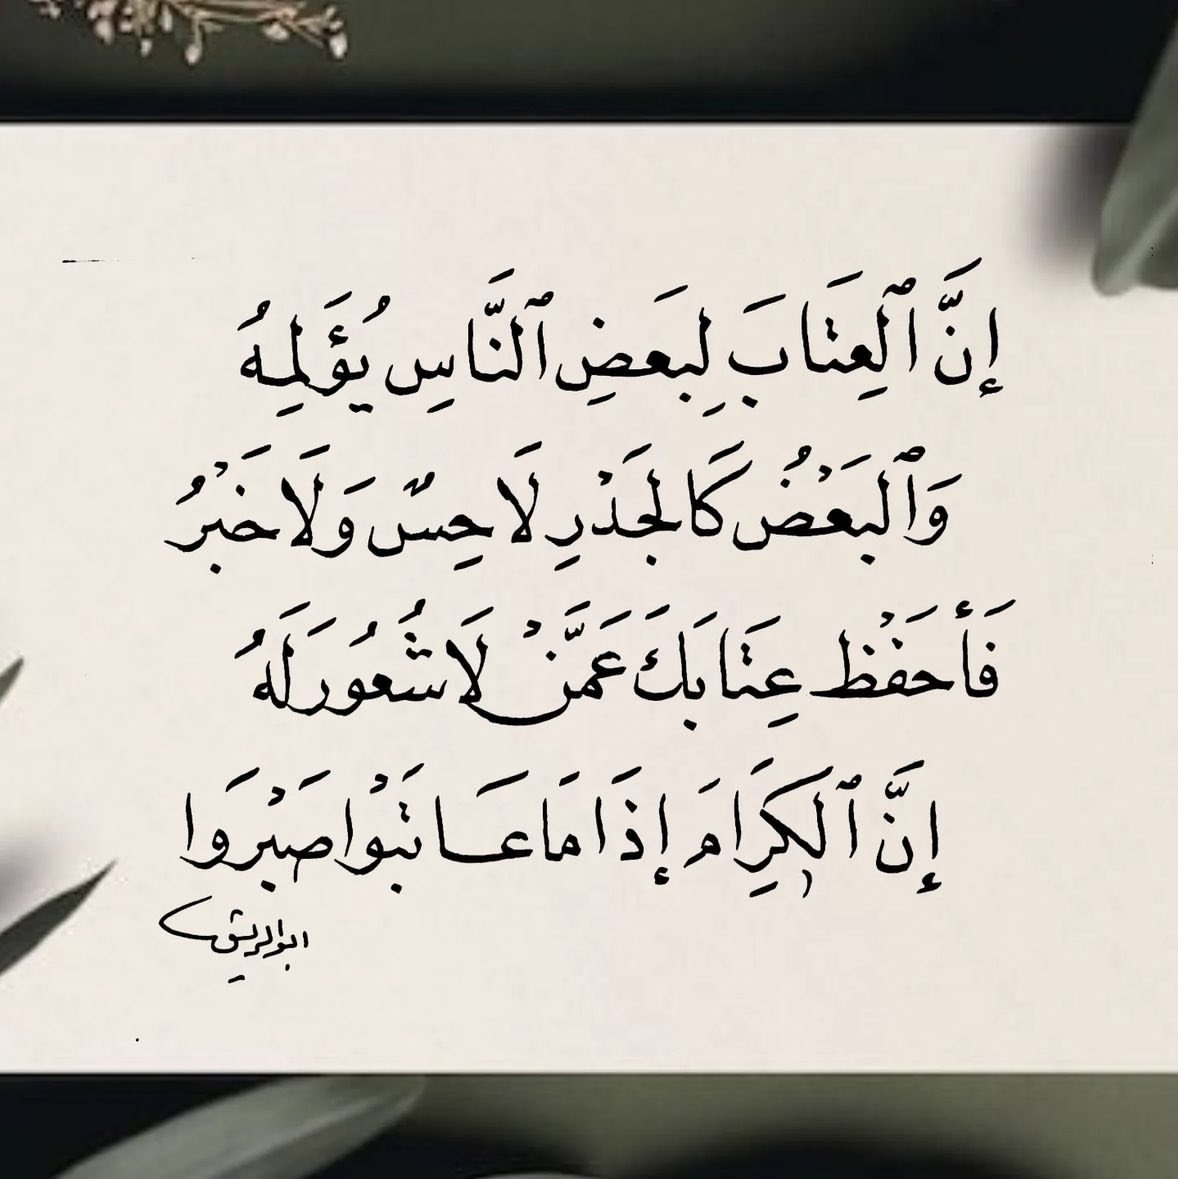 إِنَّ ٱلْعِتَابَ لِبَعضِ ٱلنَّاسِ يُؤَلِمِهُ
وَٱلبَعْضُ كَالجَذْرِ لَا حِسٌ وَلَا خَبْرُ
فَأَحفَظْ عِتَابَكَ عَمَّنْ لَا شُعُورَ لَهُ
إِنَّ ٱلكِرَامَ إِذَا مَا عَاتَبْوا صَبْرَوا
ابو الريش